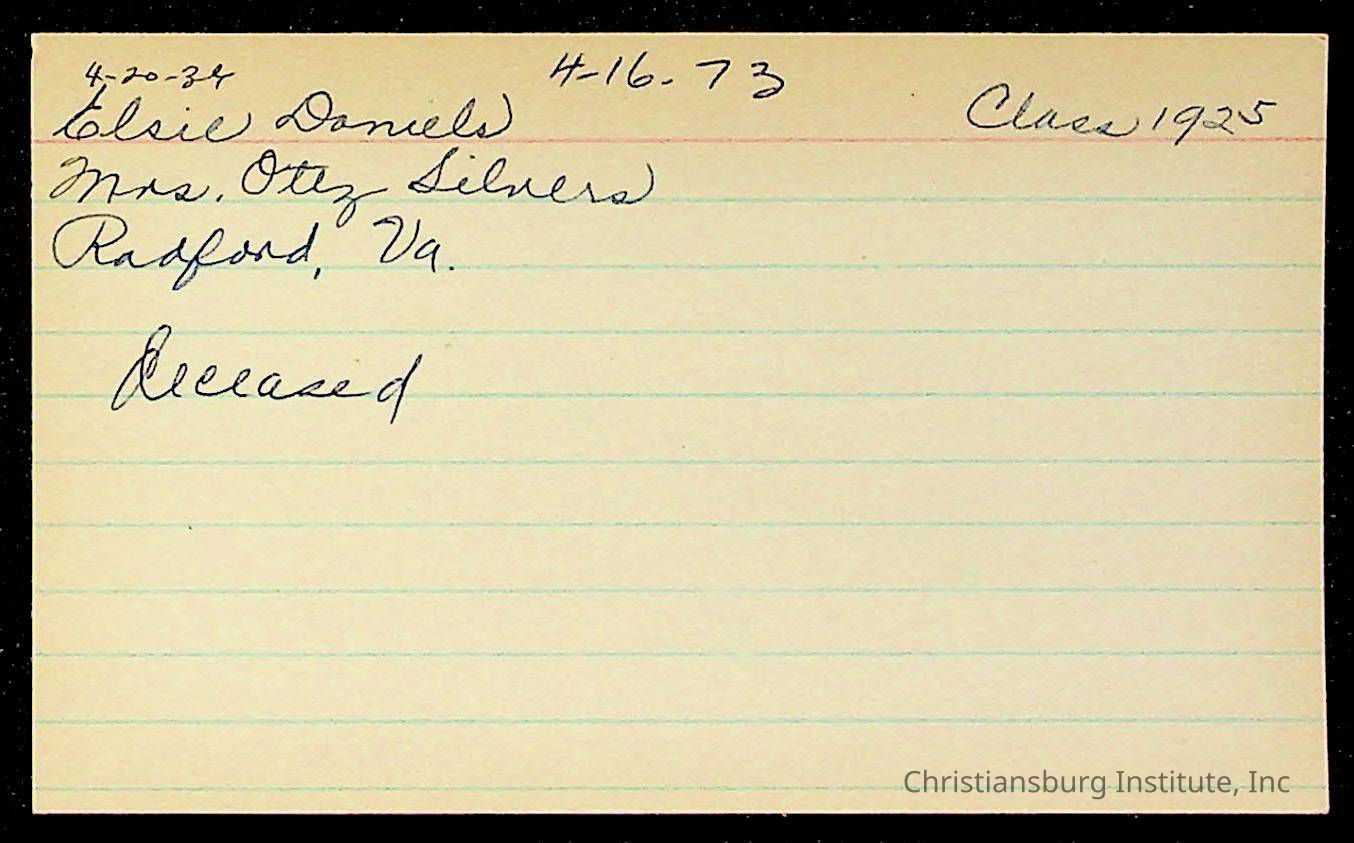 4-20-34 4-16-73
Elsie Daniels Class 1925
Mrs. Otez Silvers
Radford, Va.
Deceased
Christiansburg Institute, Inc